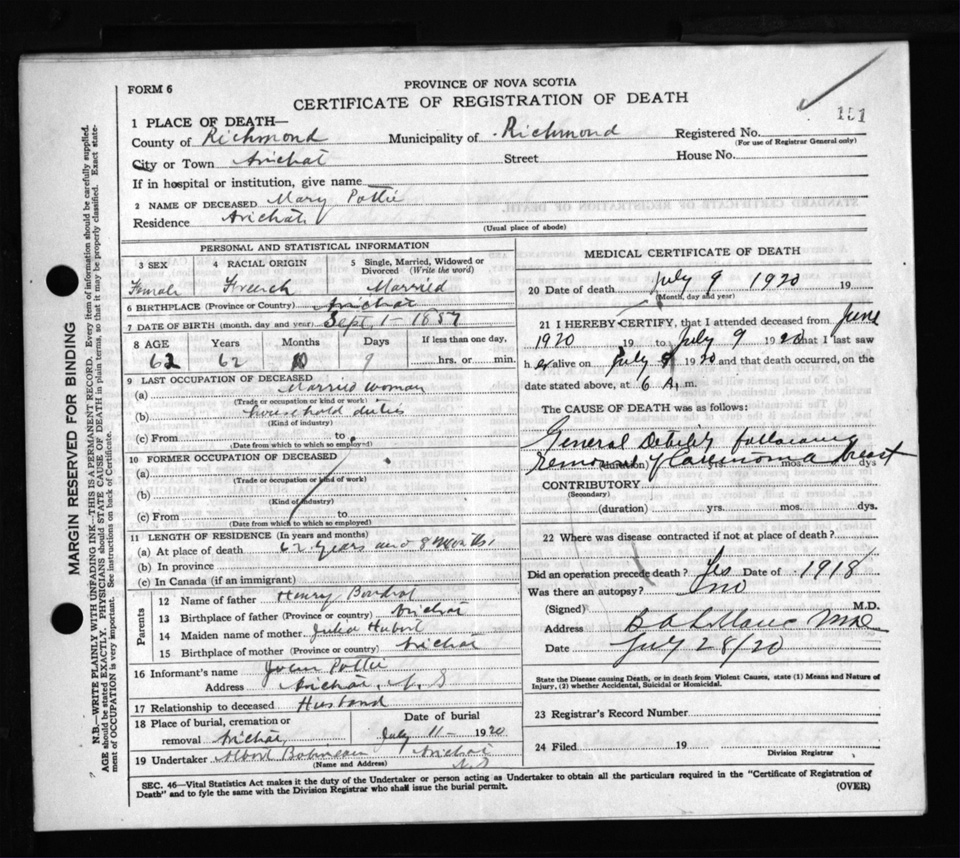 PROVINCE OF NOVA SCOTIA
FORM 6
CERTIFICATE OF REGISTRATION OF DEATH
181
1 PLACE OF DEATH—
County of Richmond Municipality of Richmond Registered No.
(For use of Registrar General only)
City or Town Arichat Street House No.
If in hospital or institution, give name
2 NAME OF DECEASED Mary Pottie
Residence Arichat
(Usual place of abode)
MARGIN RESERVED FOR BINDING
N.B.—WRITE PLAINLY WITH UNFADING INK—THIS IS A PERMANENT RECORD. Every item of information should be carefully supplied.
AGE should be stated EXACTLY. PHYSICIANS should STATE CAUSE OF DEATH in plain terms, so that it may be properly classified. Exact statement of OCCUPATION is very important. See instructions on back of Certificate.
PERSONAL AND STATISTICAL INFORMATION
3 SEX 4 RACIAL ORIGIN 5 Single, Married, Widowed or Divorced (Write the word)
Female French Married
6 BIRTHPLACE (Province or Country) Arichat
7 DATE OF BIRTH (month, day and year) Sept. 1 - 1857
8 AGE Years Months Days If less than one day,
62 62 10 9 hrs. or min.
9 LAST OCCUPATION OF DECEASED
(a) Married woman
(Trade or occupation or kind of work)
(b) household duties
(Kind of industry)
(c) From to
(Date from which to which so employed)
10 FORMER OCCUPATION OF DECEASED
(a)
(Trade or occupation or kind of work)
(b)
(Kind of industry)
(c) From to
(Date from which to which so employed)
11 LENGTH OF RESIDENCE (In years and months)
(a) At place of death 62 years and 8 months
(b) In province
(c) In Canada (if an immigrant)
Parents
12 Name of father Henry Boudrot
13 Birthplace of father (Province or country) Arichat
14 Maiden name of mother Julia Hubert
15 Birthplace of mother (Province or country) Arichat
16 Informant's name John Pottie
Address Arichat, N.S
17 Relationship to deceased Husband
18 Place of burial, cremation or removal Arichat Date of burial July 11 - 1920
19 Undertaker Albert Arichat
(Name and Address) N.S
MEDICAL CERTIFICATE OF DEATH
20 Date of death July 9 1920 19
(Month, day and year)
21 I HEREBY CERTIFY, that I attended deceased from June
1920 19 to July 9 1920 that I last saw
h er alive on July 8 1920 and that death occurred, on the
date stated above, at 6 A. m.
The CAUSE OF DEATH was as follows:
General Debility following
removal of Carcinoma breast
(duration) yrs. mos. dys
CONTRIBUTORY
(Secondary)
(duration) yrs. mos. dys.
22 Where was disease contracted if not at place of death?
Did an operation precede death? Yes Date of 1918
Was there an autopsy? no
(Signed) M.D.
Address
Date July 28/20
State the Disease causing Death, or in death from Violent Causes, state (1) Means and Nature of
Injury, (2) whether Accidental, Suicidal or Homicidal.
23 Registrar's Record Number
24 Filed 19
Division Registrar
SEC. 46—Vital Statistics Act makes it the duty of the Undertaker or person acting as Undertaker to obtain all the particulars required in the "Certificate of Registration of
Death" and to fyle the same with the Division Registrar who shall issue the burial permit.
(OVER)